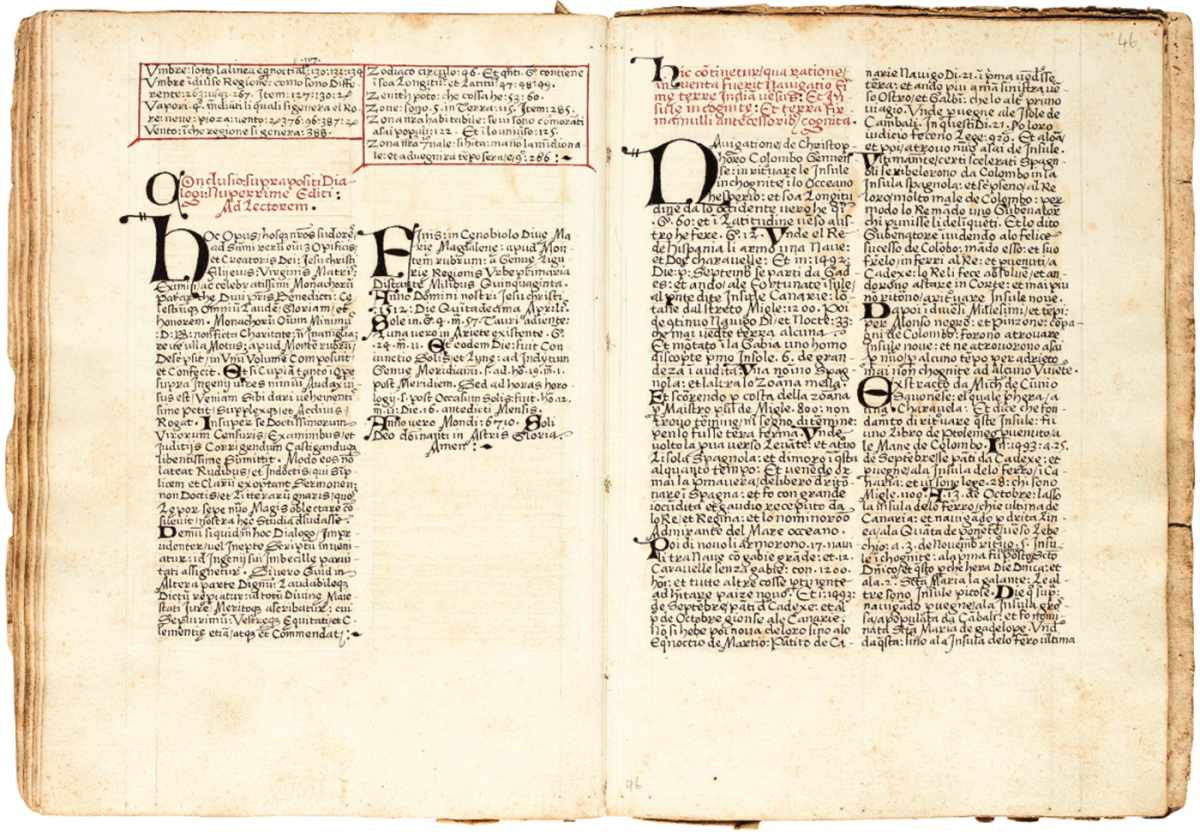 .V.
Vmbre: sotto la linea eqnoctial: 130: 132: 134
Vmbre i diuse Regione: como sono Diffe-
rente: 263: 267. Item: 127: 130: 2
Vapori q mediati li quali si genera el Ro-
re: neue: pioza: vento: 376: 96: 387:
Vento: i che regione si genera: 388.
Zodiaco circulo: 46. Et contiene
i soa Longitu: et Latitu: 47: 48: 49.
Zenith poto: che cossa he: 53: 60.
Zone: sono. 5. in Terra: 115. Item: 285.
Zona nra habitabile: se ui sono comorati
asai populi: 122. Et i lo uniuso: 125.
le: et aduegnira tepo sera: 286:
Conclusio: supra positi Dia-
logi: Nuperrime Editi:
Ad Lectorem.
Hoc Opus, hosq nros sudores,
ad Sumi rerū oium Opificis,
et Creatoris Dei: Jesu christi
filij eius: Virginis Matris
Eximij ac celebratissimi Monachorū
Patriarche Diui pris Benedicti: Ce-
lestiuq Omniū Laude: Gloriam, et
honorem. Monachorū Oium Minimu
re: et ulla Mottis, apud Monte rubru:
Descpsit, in Vnu Volume Composuit,
et Confecit. Et si Cupiam tanto i ope
supra Ingenij vires nimiu Audax in-
sus est, Veniam Sibi dari uehementis-
sime petit, Supplexq, et Acclius,
Rogat. Insuper se Doctissimorum
Virorum Censuris, Examinibus, et
Iuditijs Corrigendum Castigandumq
libentissime Sumittit. Modo eos no
lateat Rudibus, et Indoctis, qui Sup-
licem et Claru exoptant Sermonem:
non Doctis, et Litteraru gnaris, quos
Lepor sepe nuo Magis oblectare co-
sueuit, nostra hec Studia Desudasse.
Demu siquid in hoc Dialogo, Impr-
udenter, uel Inepte Scriptu inueni-
atur: id Ingenij sui Imbecille parui-
tati assignetur. Si uero Quid in
Altera parte Dignu, Laudabileq
Dictu repiatur: id totu Diuine Maie-
stati Iure Meritoq ascribatur: cui
Se plurimu: Vestreq Equitati, et C-
lementie eta atq et Commendat:
Finis: in Cenobio Diue Ma-
rie Magdalene: apud Mon-
tem rubrum: a Genue Ligu-
rie Regionis Vrbe primaria
Distante Milibus Quinquaginta.
Anno Domini nostri Jesu christi
.1512. Die Quintadecima Aprilis.
Sole in. G. 4. m. 57. Tauri adiente:
Luna uero in Ariete existente. G.
24. m. 11. Et eodem Die: fuit Con-
iunctio Solis, et Lune: ad Indytum
Genue Meridianu. s. ad. ho. 19. m. 1.
post Meridiem. Sed ad horas horo-
logij. s. post Occasum Solis: fuit. ho. 12.
m. 11. Die. 16. antedicti Mensis.
Anno vero Mondi: 6710. Soli
Deo dominanti in Astris Gloria
Amen:
46
Hic cotinetur, qua ratione,
inuenta fuerit Nauigatio Ex-
me terre Indiā uesus: Et In-
sule incognite: Et terra Fir-
ma: nulli antecessorib cognita.
Nauigatione de Christop-
horo Colombo Genuen-
se: in rituare le Insule
inchognite i lo Occeano
hesperio: et soa Longitu-
dine da lo occidente uero he
G. 60: et i Latitudine ueso a us-
tro he fere. G. 12. Vnde el Re
de hispania li armo una Naue:
et Doe charauelle: Et in: 1492:
Die: p: Septemb se parti da Gad-
es: et ando, a le Fortunate isule,
al pnte dite Insule Canarie: lo-
tane dal streto Migle: 1200. Poi
de qtinuo Nauigo Di, et Nocte: 33:
che mai uedete terra alcuna.
Et motato i la Gabia uno homo
discopte pmo Insole. 6. de gran-
deza i audita: Vna noi no Spag-
nola: et laltra lo Zoana mella.
Et scorendo p costa della zoana
p Maistro psil de Migle. 800: non
trouo temine, ni segno di temine:
penso fusse terra ferma. Vnde
uolto la pua verso Leuante: et atio
Lisola Spagnola: et dimoro in qsta
alquanto tempo: Et venedo or-
mai la pmauera, delibero drito-
nare i Spagna: et fo con grande
iocidita et gaudio recepiuto da
lo Re, et Regina: et lo nominoro
Admirante del Mare occeano.
Poi di nouo li armorono. 17. naui
li tra Naue co gabie grade: et. 12.
Carauelle senza gabie: con. 1200.
hoi: et tutte altre cosse ptinente
ad hitare paize nouo. Et i: 1493:
de Septebre, pati da Cadexe: et al
p de Octobre gionse ale Canarie.
No si hebe poi noua de loro sino ale
Eqnoctio de Martio: Patito de Ca-
narie Nauigo Di. 21. i pma uedesse
tera: et ando piu a ma sinistra ue-
so Ostro, et Galbi: che lo alt primo
uiagio. Vnde puegne ale Isole de
Cambali. In questi Di. 21. Po loro
iudicio feceno Lege: 920. Et aloa
et poi, atrouo nuo asai de Insule.
Vltimante, certi scelerati Spagn-
oli se ribelorono da Colombo in la
Insula spagnola: et scpseno, al Re
loro, molto male de Colombo: per
modo lo Re mado uno Gubenator
chi punisse li deliqueti. Et lo dito
Gubenatore uidendo alo felice
sucesso de Colobo, mado esso: et suo
frelo, in ferri al Re: et puenuti, a
Cadexe: lo Re li fece absolue: et an-
dorono a stare in Corte: et mai piu
no uitono, a rituare Insule noue.
Dapoi i diuesi Millesimi, et tepi:
per Alonso negro: et Pinzone: copa-
gni de Colombo: forono atrouate
Insule noue: et ne atrouorono asai
p niuo, p alcuno tepo per adrieto
mai non chognite ad alcuno Viuete.
Extracto da Mich. de Cunio
Saonese: el quale, phera, a
una Charauela: Et dice che fon-
damto di rituare qste Insule: fu
uno Libro de Ptolemeo puenuto, a
le Mane de Colombo. In: 1493: a. 25.
de Septebre, se pati da Cadexe: et
puegne, ala Insula de lo ferro, i Ca-
naria: et ui sono lege. 28: chi sono
Migle. 1100. A. 13. de Octobre: lasso
la insula de lo ferro, chi e ultima de
Canaria: et nauigado p drita lin-
ea, ala Quarta de ponete, ueso Lebe-
chio: a. 3. de Nouembri tuo. 5. Insu-
le i chognite: ala pma fu posto Scto
Dnico, et qsto p che hera Die Dnica: et
ala. 2a. Scta Maria la galante: Le al-
tre sono Insule picole. Die qs sup:
nauigado puegne, ala Insula gro-
sa, apopulata da Cabali: et fo nomi-
nata Scta Maria de gadelope. Vnd
da qsta: sino ala Insula de lo Fero ultima
46